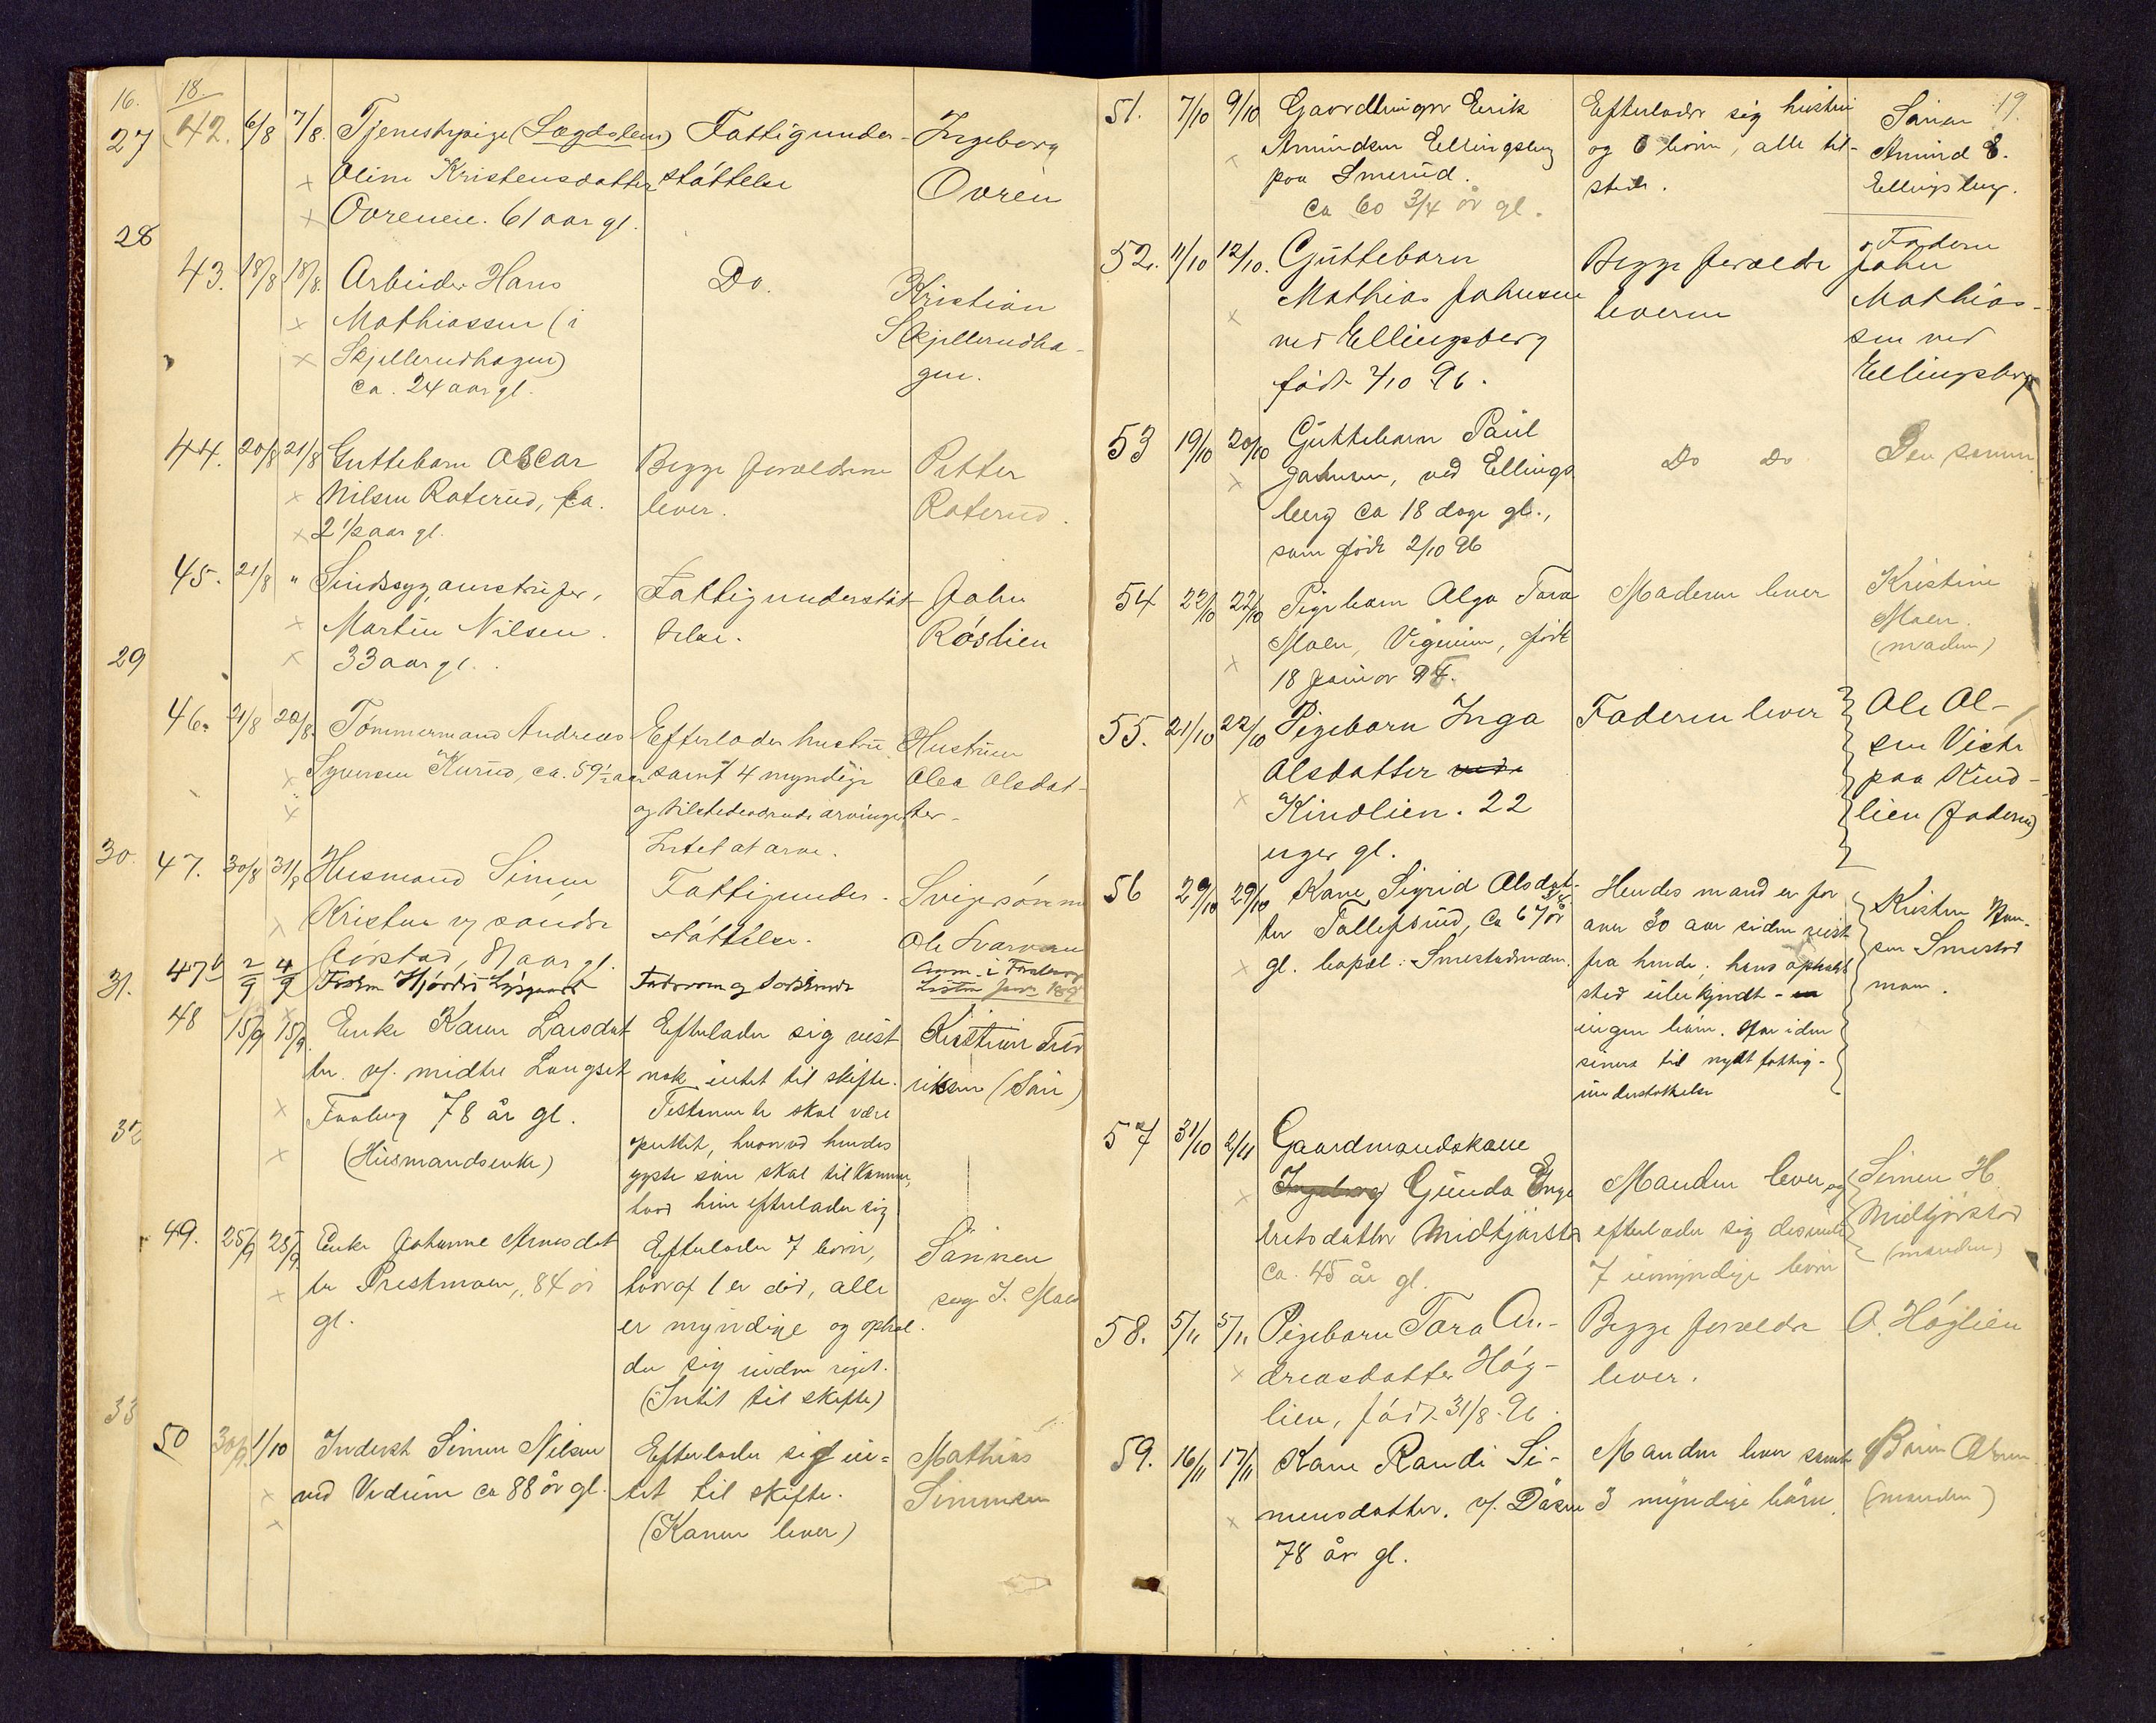 16.
27
28
29
30.
31.
32
33
18.
42. 6/8 7/8. Tjenestepige (Lægdslem) Fattigunder- Ingeborg
Oline Kristensdatter støttelse Ovren
Ovreneie. 61 aar gl.
43. 18/8 18/8. Arbeider Hans Do. Kristian
Mathiassen (i Skjellerudha-
Skjellerudhagen) gen.
ca. 24 aar gl.
44. 20/8 21/8 Guttebarn Oscar Begge forældrene Petter
Nilsen Roterud, ca. lever. Roterud.
2 1/2 aar gl.
45. 21/8 " Sindssyg
Fattigunderstøt- John
Martin Nilsen. telse. Røslien
33 aar gl.
46. 21/8 20/8. Tømmermand Andreas Efterlader hustru Hustruen
Syversen Kurud, ca. 59 1/2 aar samt 4 myndige Olea Olsdat-
og tilstedeværende arvinger. ter.
Intet at arve.
47. 30/8 31/8 Husmand Simen Fattigunder- Svigersønnen
Kristian søndre støttelse. Ole
81 aar gl.
47b 2/9 4/9 Hjørdis
48 15/9 15/9. Enke Karen Larsdat Efterlader sig vist Kristian Fred
ter v/. midtre Langset nok intet til skifte. riksen (Søn)
Faaberg 78 år gl. Testamente skal være
(Husmandsenke) oprettet, hvorved hendes
yngste søn skal tilkomme,
hvad hun efterlader sig
49. 25/9 25/9. Enke Johanne Arnesdat Efterlader 7 børn, Sønnen
ter Prestmoen, 84 år hvoraf 1 er død, alle
gl. er myndige og ophol
der sig inden riget.
(Intet til skifte)
50 30/9. 1/10 Inderst Simen Nilsen Efterlader sig in= Mathias
ved Vedum ca 88 år gl. tet til skifte. Simensen
(Konen lever)
19.
51. 7/10 9/10 Erik Efterlader sig hustru Sønnen
Amundsen Ellingsberg og 6 børn, alle til- Amund E.
paa Smerud. stede. Ellingsberg.
ca 60 3/4 år gl.
52. 11/10 12/10. Guttebarn Begge forældre Faderen
Mathias Johnsen leverer John
ved Ellingsberg Mathias-
født 7/10 96. sen ved
Ellingsberg
53 19/10 20/10 Guttebarn Paul Do Do Den samme
Johnsen, ved Ellings
berg ca 18 dage gl.,
som født 2/10 96
54 22/10 22/10 Pigebarn Olga Tora Moderen lever Kristine
Moen, født Moen.
18 januar (moderen)
55. 21/10 22/10 Pigebarn Inga Faderen lever Ole Ol-
Olsdatter sen
Kindlien. 22 paa Kind-
uger gl. lien (faderen)
56 29/10 29/10 Kone Sigrid Olsdat- Hendes mand er for Kristen Han-
ter Tollefsrud, ca 67 år over 30 aar siden reist sen Smestad
gl. bopæl: Smestadmoen. fra hende; hans opholds moen.
sted ubekjendt -
ingen børn. Har iden
senere tid nydt fattig-
understøttelse
57 31/10 2/11 Gaardmandskone
Ingeborg Gunda Enge Manden lever og Simen H.
bretsdatter Midtjørstad efterlader sig desuden Midtjørstad
ca. 45 år gl. 7 umyndige børn (manden)
58. 5/11 5/11 Pigebarn Tora An- Begge forældre O. Høglien
dreasdatter Høg- lever.
lien, født 31/8-96.
59. 16/11 17/11 Kone Randi Si- Manden lever samt
mensdatter. v/. Dåsen 3 myndige børn. (manden)
78 år gl.